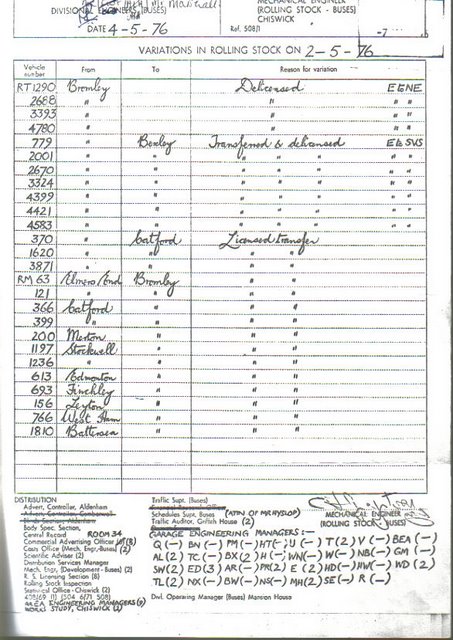 DIVISIONAL ENGINEERS (BUSES)
MECHANICAL ENGINEER
(ROLLING STOCK - BUSES)
CHISWICK
DATE 4-5-76 Ref. 508/1
VARIATIONS IN ROLLING STOCK ON 2-5-76
Vehicle number From To Reason for variation
RT1290 Bromley Delicensed EENE
2688 " " " "
3393 " " " "
4780 " " " "
779 " Bexley Transferred & delicensed EESVS
2001 " " " " " " "
2670 " " " " " " "
3324 " " " " " " "
4399 " " " " " " "
4421 " " " " " " "
4583 " " " " " " "
370 " Catford Licensed transfer
1620 " " " "
3871 " " " "
RM 63 Elmers End Bromley " "
121 " " " "
366 Catford " " "
399 " " " "
200 Merton " " "
1197 Stockwell " " "
1236 " " " "
613 Edmonton " " "
693 Finchley " " "
156 Leyton " " "
766 West Ham " " "
1810 Battersea " " "
DISTRIBUTION
Advert. Controller, Aldenham
Body Spec. Section,
Central Record ROOM 34
Commercial Advertising Officer
Costs Office (Mech. Engr.-Buses) (2)
Scientific Adviser (2)
Distribution Services Manager
Mech. Engr. (Development - Buses)
R. S. Licensing Section (8)
Rolling Stock Inspection
Statistical Office - Chiswick (2)
AREA ENGINEERING MANAGERS
WORK STUDY, CHISWICK (2)
Traffic Supt. (Buses)
Schedules Supt. Buses (ATTN OF MR HYSLOP)
Traffic Auditor, Griffith House (2)
MECHANICAL ENGINEER
(ROLLING STOCK - BUSES)
GARAGE ENGINEERING MANAGERS:-
Q(-) BN(-) PM(-) HT(-) U(-) T(2) V(-) BEA(-)
AL(2) TC(-) BX(2) H(-) WN(-) W(-) NB(-) GM(-)
SW(2) ED(3) AR(-) PR(2) E(2) HD(-) HW(-) WD(2)
TL(2) NX(-) BW(-) NS(-) MH(2) SE(-) R(-)
Divl. Operating Manager (Buses) Mansion House